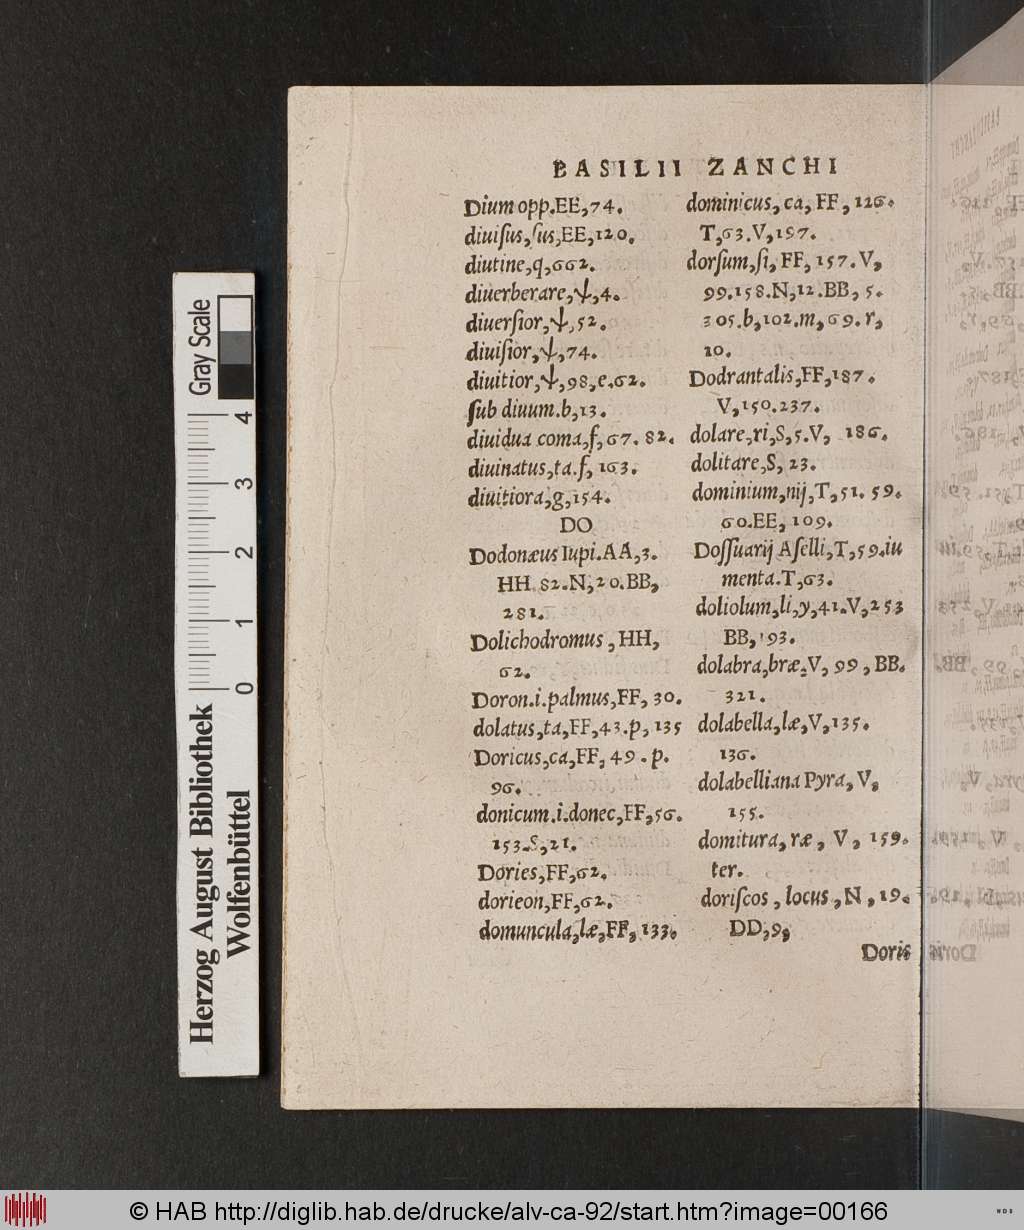 BASILII ZANCHI
Dium opp.EE,74.
diuiſus,ſus,EE,120.
diutine,q,662.
diuerberare,ψ,4.
diuerſior,ψ,52.
diuiſior,ψ,74.
diuitior,ψ,98,e.62.
ſub diuum.b,13.
diuidua coma,f,67. 82.
diuinatus,ta.f, 163.
diuitiora,g,154.
DO
Dodonæus Iupi.AA,3.
HH. 82.N,20.BB,
281.
Dolichodromus, HH,
62.
Doron.i.palmus,FF, 30.
dolatus,ta,FF,43.p, 135
Doricus,ca,FF, 49 . p.
96.
donicum.i.donec,FF,56.
153.S,21.
Dories,FF,62.
dorieon,FF,62.
domuncula,læ,FF,133.
dominicus, ca, FF, 126.
T,63.V,197.
dorſum,ſi, FF, 157.V,
99.158.N,12.BB, 5.
305.b,102.m,69.r,
10.
Dodrantalis,FF,187.
V,150.237.
dolare,ri,S,5.V, 186.
dolitare,S, 23.
dominium,nij,T,51. 59.
60.EE, 109.
Doſſuarij Aſelli,T,59.iu
menta.T,63.
doliolum,li,y,41.V,253
BB, 93.
dolabra,bræ,V, 99, BB.
321.
dolabella,læ,V,135.
136.
dolabelliana Pyra, V,
155.
domitura, ræ, V, 159.
ter.
doriſcos, locus, N, 19.
DD,9,
Doris
Gray Scale
4
3
2
1
0
Herzog August Bibliothek
Wolfenbüttel
© HAB http://diglib.hab.de/drucke/alv-ca-92/start.htm?image=00166